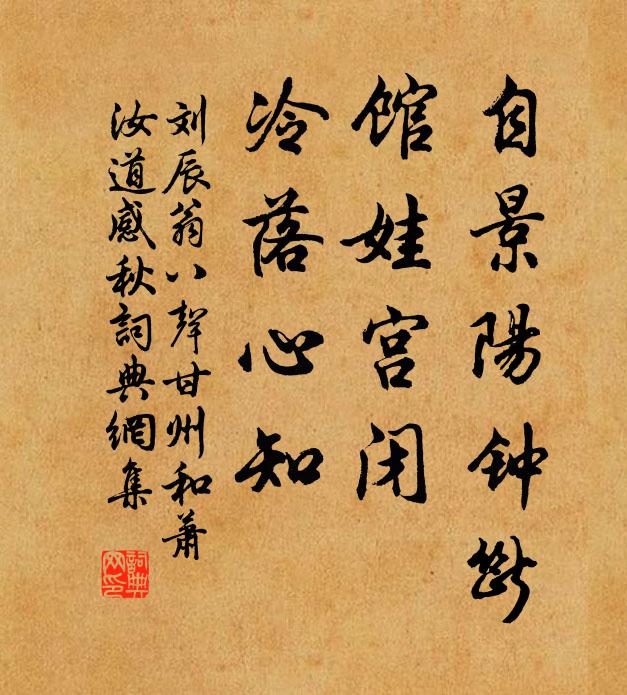 自景陽钟断
馆娃宫闭
冷落心知
刘辰翁八聲甘州和萧
汝道感秋詞典網集
詞典网印